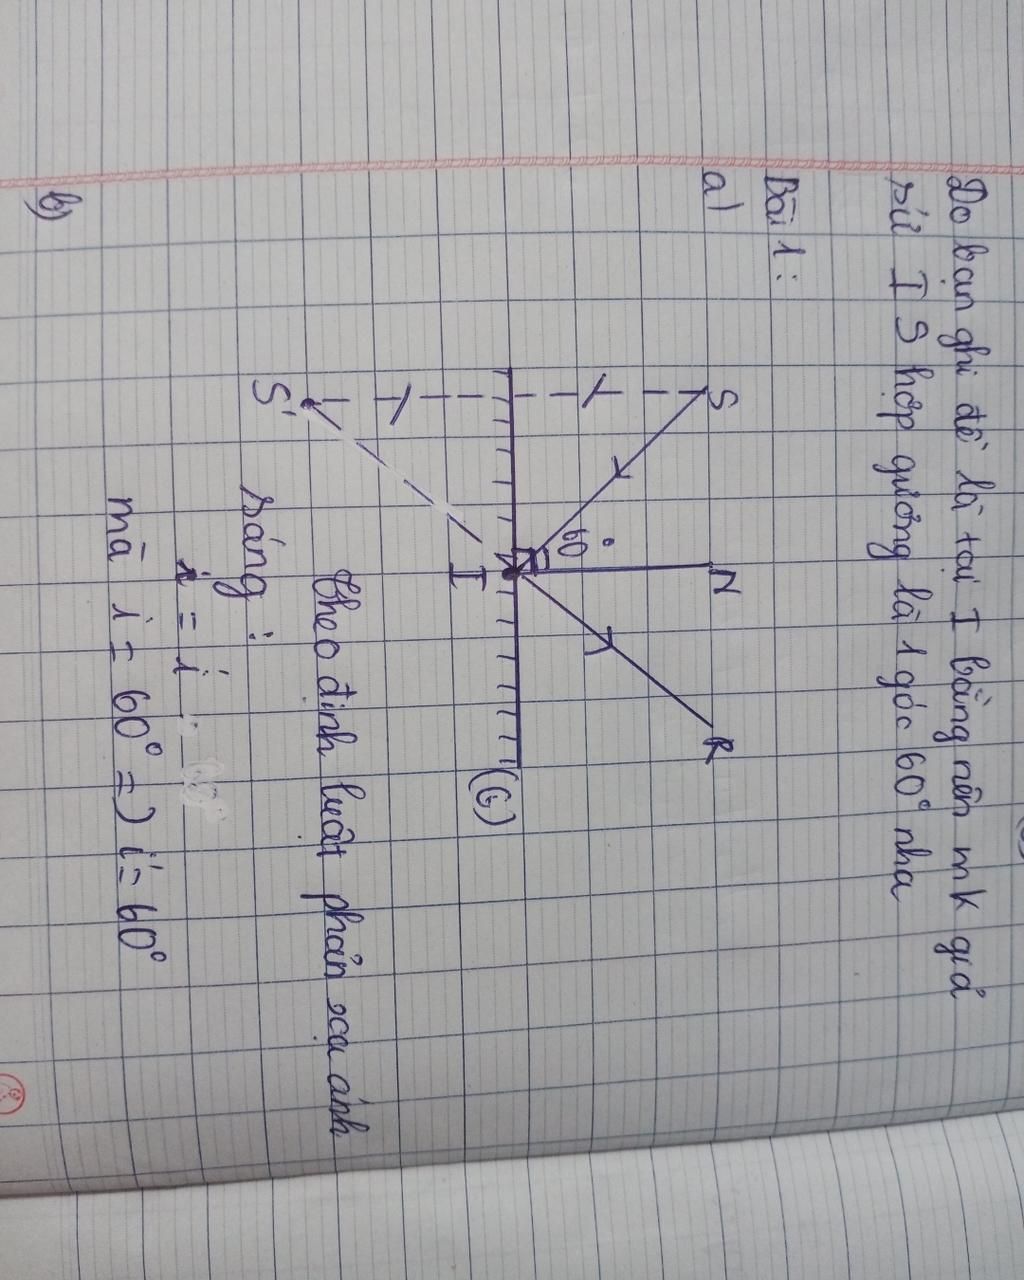 Do bạn ghi đề là tại I bằng nên mk giả
sử IS hợp gương là 1 góc 60° nha
Bài 1:
a)
S
N
R
60°
I
(G)
S'
Theo định luật phản xạ ánh
sáng:
i = i
mà i = 60° => i' = 60°
b)